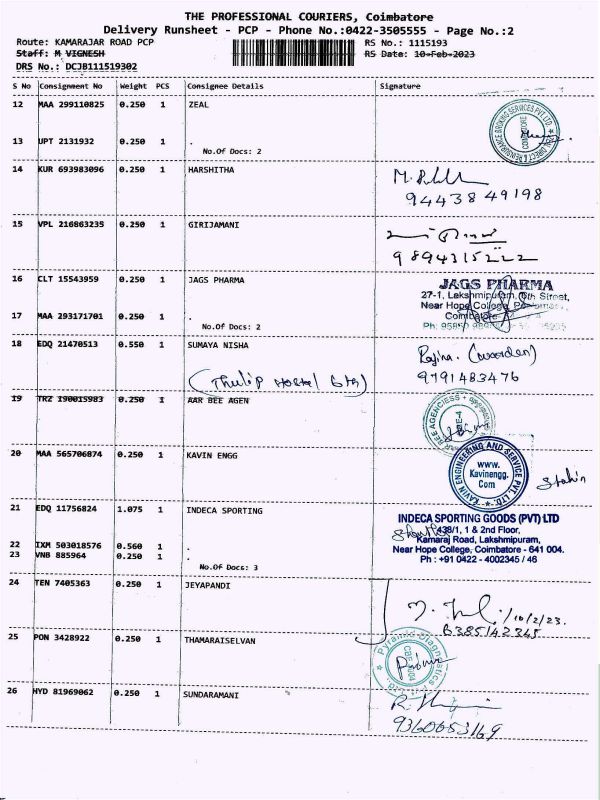 THE PROFESSIONAL COURIERS, Coimbatore
Delivery Runsheet - PCP - Phone No.:0422-3505555 - Page No.:2
Route: KAMARAJAR ROAD PCP RS No.: 1115193
Staff: M VIGNESH RS Date: 10-Feb-2023
DRS No.: DCJB111519302
S No Consignment No Weight PCS Consignee Details Signature
12 MAA 299110825 0.250 1 ZEAL
13 UPT 2131932 0.250 1 .
No.Of Docs: 2
14 KUR 693983096 0.250 1 HARSHITHA
9443849198
15 VPL 216863235 0.250 1 GIRIJAMANI
9894315222
16 CLT 15543959 0.250 1 JAGS PHARMA
JAGS PHARMA
27-1, Lakshmipuram, 6th Street,
Near Hope College,
17 MAA 293171701 0.250 1 .
No.Of Docs: 2
18 EDQ 21470513 0.550 1 SUMAYA NISHA
(warden)
9791483476
(Thulip Hostel
19 TRZ 190015983 0.250 1 AAR BEE AGEN
20 MAA 565706874 0.250 1 KAVIN ENGG
KAVIN ENGINEERING AND SERVICE PVT. LTD
www.
Kavinengg.
Com
21 EDQ 11756824 1.075 1 INDECA SPORTING
INDECA SPORTING GOODS (PVT) LTD
438/1, 1 & 2nd Floor,
Kamaraj Road, Lakshmipuram,
Near Hope College, Coimbatore - 641 004.
Ph : +91 0422 - 4002345 / 46
22 IXM 503018576 0.560 1 .
23 VNB 885964 0.250 1 .
No.Of Docs: 3
24 TEN 7405363 0.250 1 JEYAPANDI
/10/2/23.
25 PON 3428922 0.250 1 THAMARAISELVAN
Pyramid Diagnostics
26 HYD 81969062 0.250 1 SUNDARAMANI
9360653169